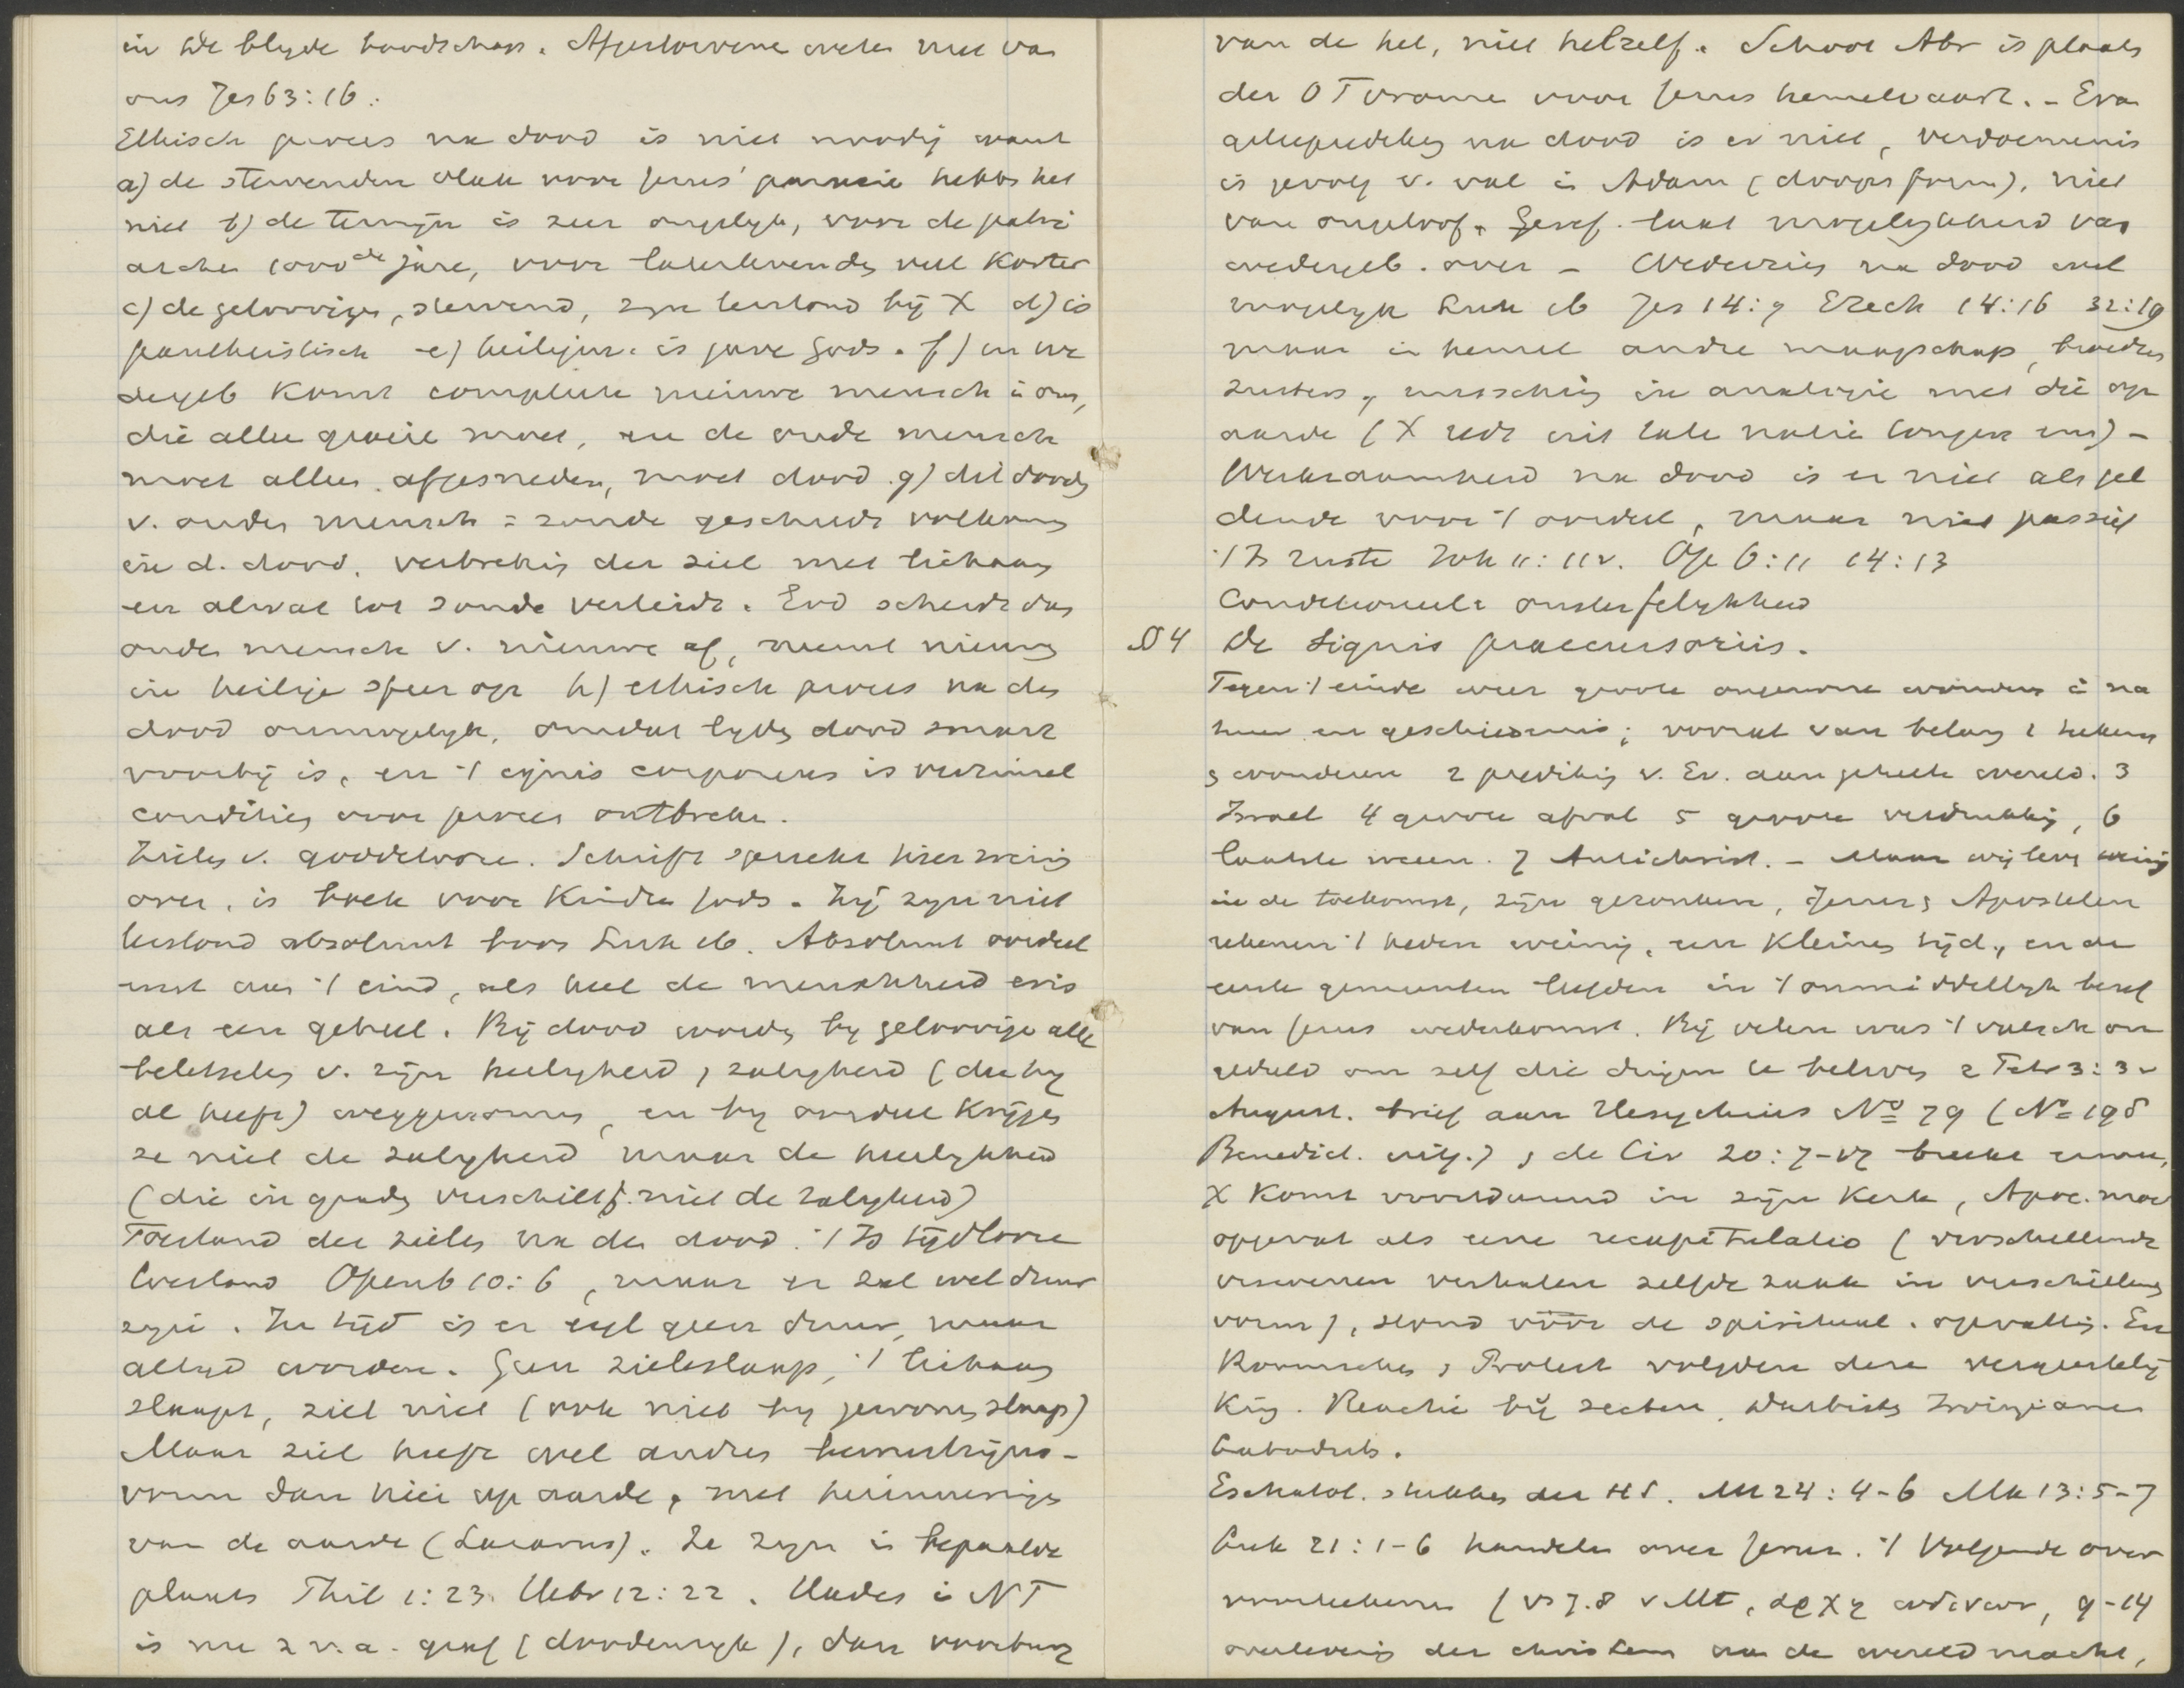 in de blyde boodschap. Afgestorvene weten niet van
ons Jes 63:16.
Ethisch proces na dood is niet noodig want
a) de stervenden vlak voor Jezus' parusie hebb. het
niet b) de termijn is zeer ongelyk, voor de patri
archen 1000de jare, voor laterlevend veel korter
c) de geloovigen, stervend, zyn terstond bij X d) is
pantheistisch e) heiligm. is gave Gods. f) in we
dergeb komt complete nieuwe mensch i ons,
die alleen groeie moet, en de oude mensch
moet alleen afgesneden, moet dood. g) dit dood
v. ouden mensch = zonde geschiedt volkomen
in d. dood, verbreking der ziel met lichaam
en alwat tot zonde verleidt. God scheidt dan
ouden mensch v. nieuwe af, neemt nieuwe
in heilige sfeer op h) ethisch proces na den
dood onmogelyk, omdat tyd dood smart
voorbij is, en 't ignis corporeus is verzinsel
condities voor proces ontbreken.
Zielen v. goddeloozen. Schrift spreekt hier weinig
over, is boek voor kindren Gods. Zij zyn niet
terstond absoluut boos Luk 16. Absoluut oordeel
eerst aan 't eind, als heel de menschheid er is
als een geheel. Bij dood worden by geloovige alle
beletselen v. zijn heiligheid, zaligheid (die hy
al heeft) weggenomen, en by oordeel krijgen
ze niet de zaligheid maar de heerlykheid
(die in graden verschilt, niet de zaligheid)
Toestand der zielen na den dood. 't Is tijdlooze
toestand Openb 10:6, maar er zal wel duur
zyn. In tijd is er eigl geen duur, maar
altyd worden. Geen zieleslaap, 't lichaam
slaapt, ziel niet (ook niet by gewonen slaap)
Maar ziel heeft wel andren bewustzijns-
vorm dan hier op aarde, met herinneringen
van de aarde (Lazarus). Ze zyn in bepaalde
plaats Phil 1:23. Hebr 12:22. Hades i NT
is nu z v.a. graf (doodenryk), dan voorburg
van de hel, niet helzelf. Schoot Abr is plaats
der OT vrome voor Jezus hemelvaart. - Evan
geliepredeking na dood is er niet, verdoemenis
is gevolg v. val in Adam (doopsform), niet
van ongeloof. Geref. laat mogelykheid van
wedergeb. over - Wederzien na dood wel
mogelyk Luk 16 Jes 14:9 Ezech 14:16 32:19
maar in hemel andre maagschap, broeders
zusters, misschien in analogie met die op
aarde (X redt uit tale natie tongen enz) -
Werkzaamheid na dood is er niet als gel
dende voor 't oordeel, maar niet passief
't Is ruste Joh 11:11v. Op 6:11 14:13
Conditioneele onsterfelykheid
§4 De signis praecursoriis.
Tegen 't einde weer groote ongewone wonders i na
tuur en geschiedenis; vooral van belang 1 tekens
& wonderen 2 prediking v. Ev. aan geheele wereld. 3
Israel 4 groote afval 5 groote verdrukking, 6
laatste weeën. 7 Antichrist. - Maar wij leven weinig
in de toekomst, zijn gezonken, Jezus & Apostelen
rekenen 't heden weinig, een kleinen tijd, en de
eerste gemeenten leefden in 't onmiddellyk besef
van Jezus wederkomst. Bij velen was 't valsch on
geduld om zelf die dingen te beleven 2 Petr 3:3v
August. brief aan Hesychius No 79 (No 198
Benedict. uitg.) & de Civ 20:7-17 breekt ermee,
X komt voortdurend in zijn kerk, Apoc. moet
opgevat als eene recapitulatio (verschillende
visioenen verhalen zelfde zaak in verschillend
vorm), stond vóór de spiritual. opvatting. En
Roomschen & Protest volgden deze vergeestely
king. Reactie bij secten, Darbisten Irvingianen
Labadists.
Eschatol. stukken der HS. Mt 24:4-6 Mk 13:5-7
Luk 21:1-6 handelen over Jeruz. 't Volgende over
voorteekenen (vs 7.8 v Mt, αρχη ωδινων, 9-14
overlevering der christenen aan de wereldmacht,